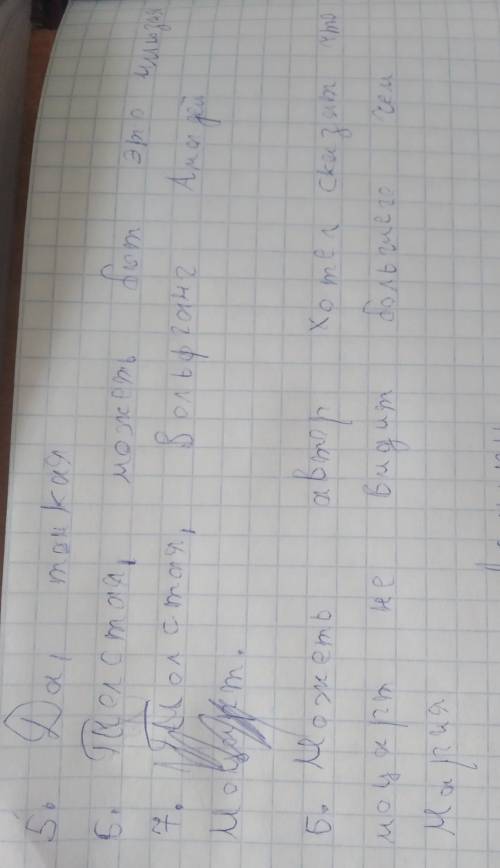 5. Да, тонкая
6. Толстая, можеть быт это
7. Толстая, Вольфганг Амадей
Моцарт.
Б. Можеть автор хотел сказат что
моцарт не видит большего чем
Мария